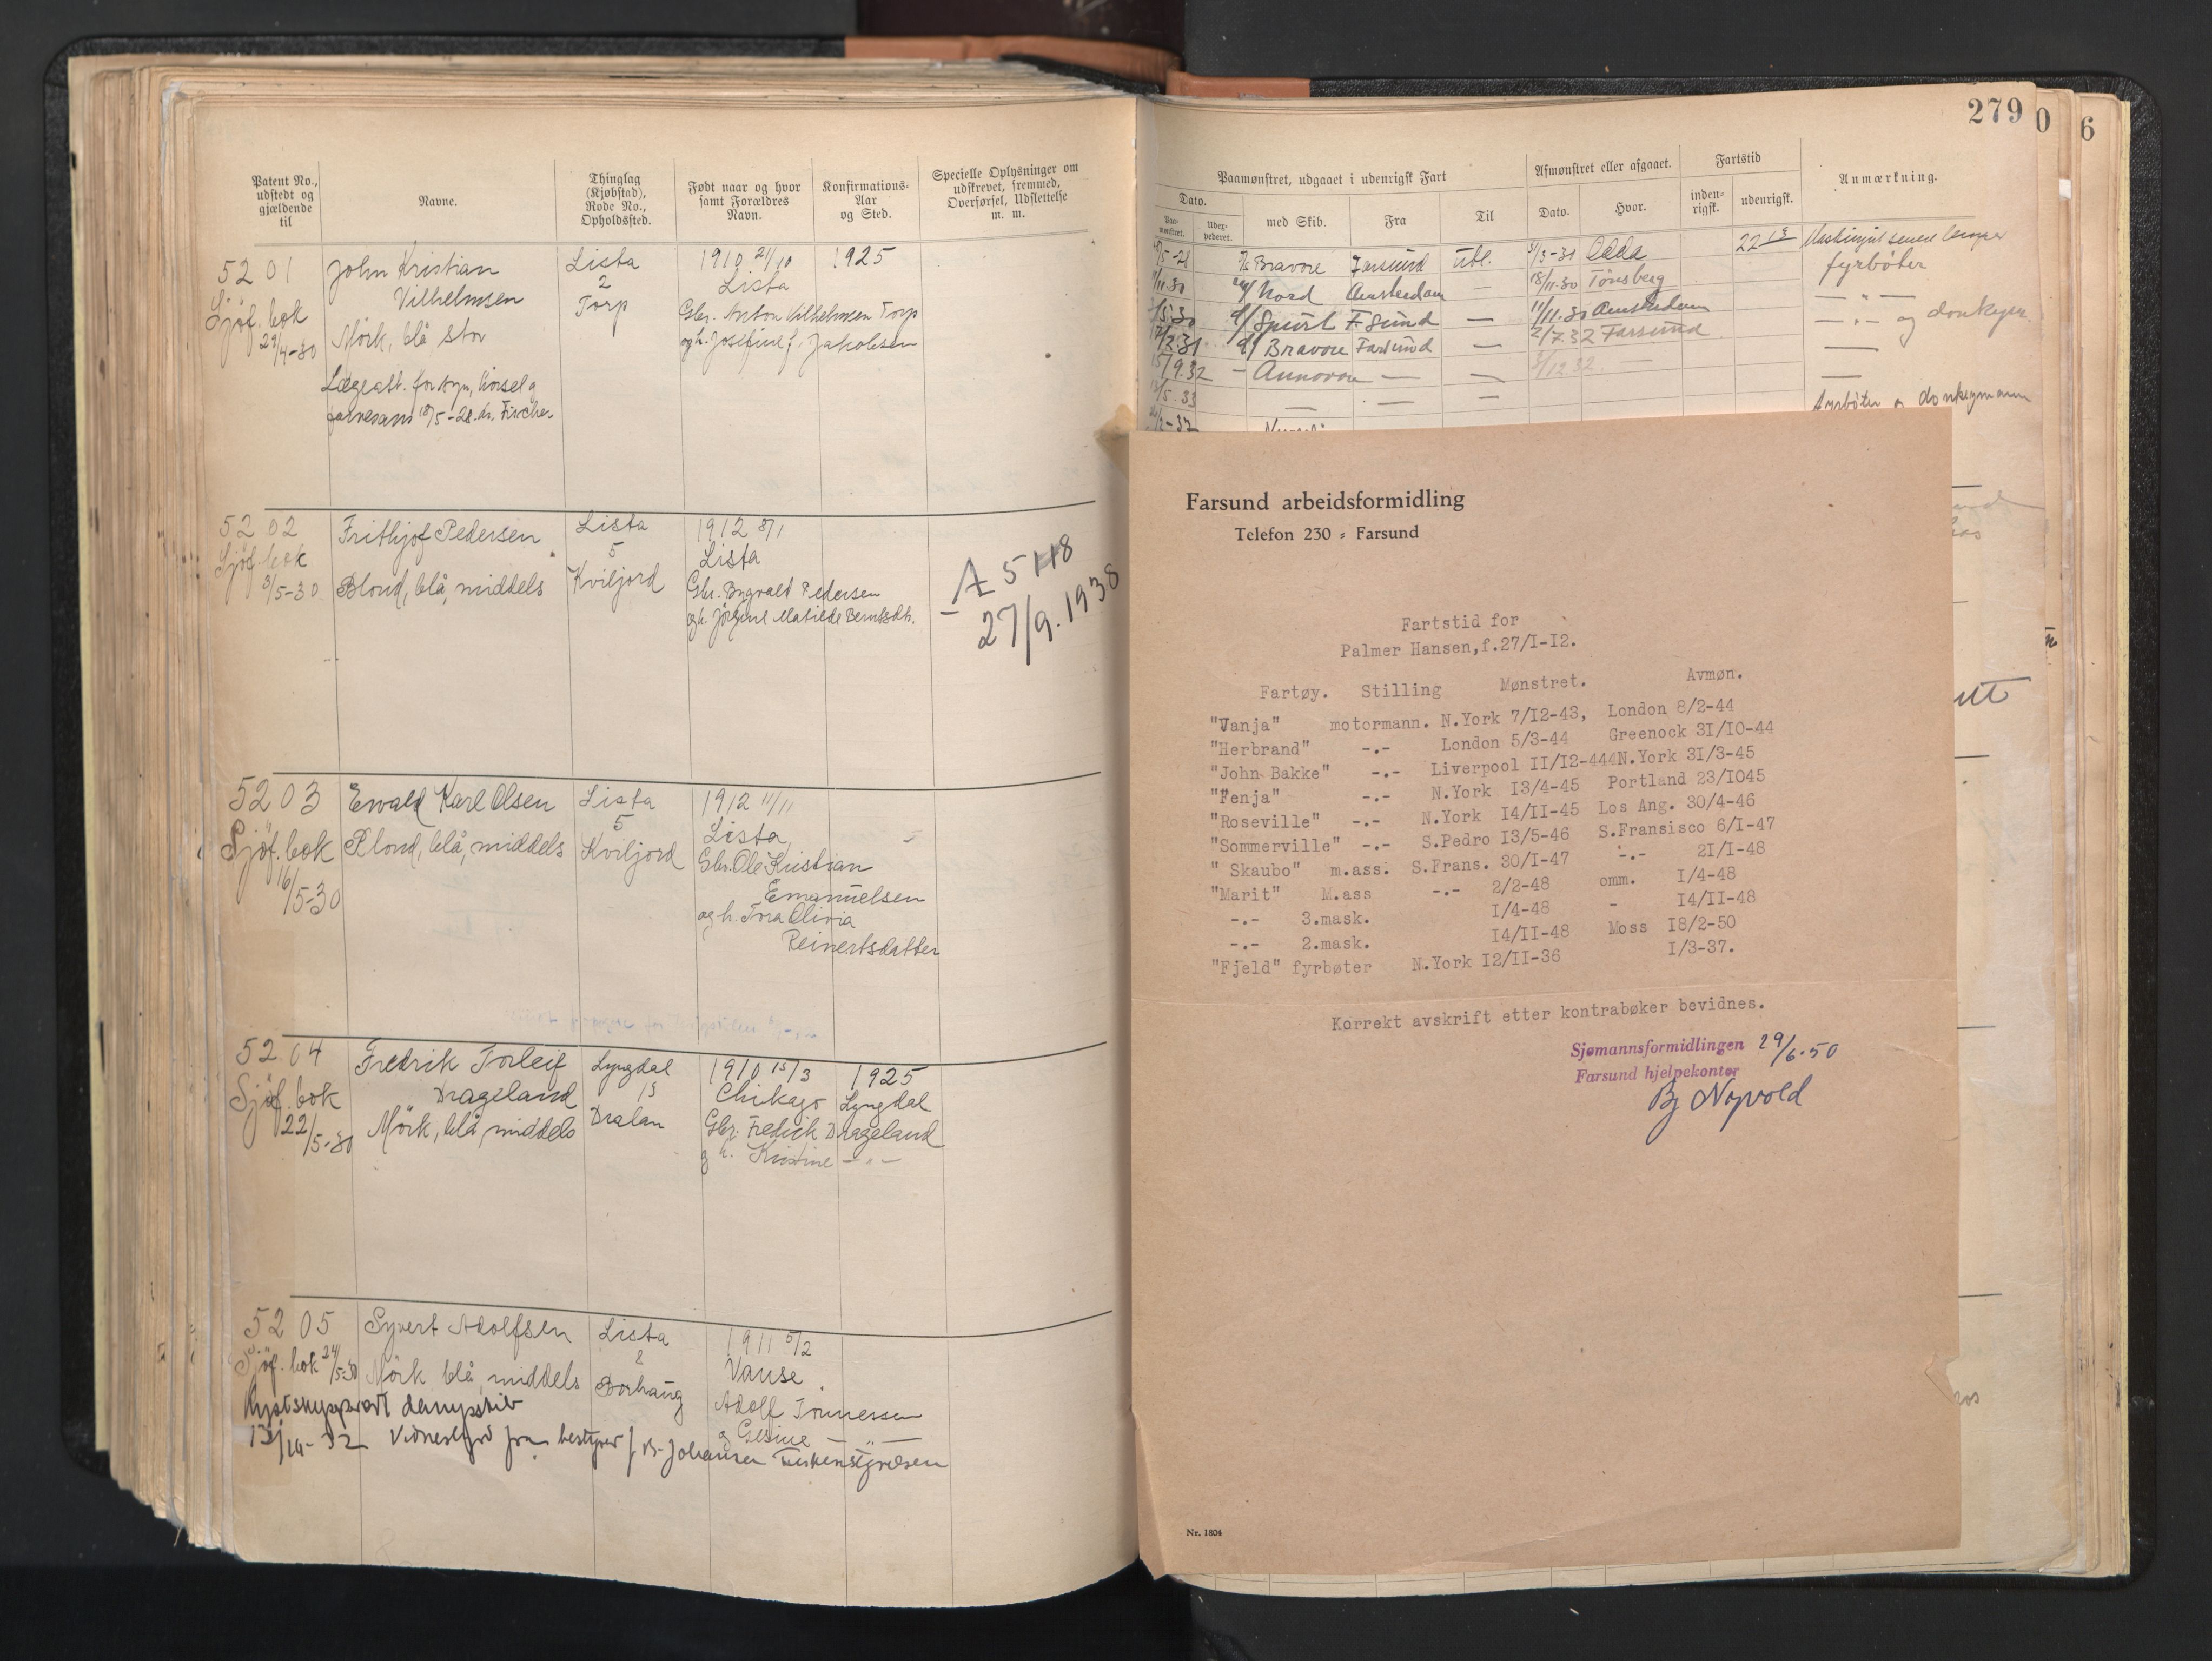 279
0
6
Patent No., udstedt og gjældende til
Navne.
Thinglag (Kjøbstad), Rode No., Opholdssted.
Født naar og hvor samt Forældres Navn.
Konfirmations-Aar og Sted.
Specielle Oplysninger om udskrevet, fremmed, Overførsel, Udslettelse m. m.
5201
Sjöf. bok
29/4-30
John Kristian
Vilhelmsen
Mörk, blå stor
Lægeatt. for syn, hörsel og
farvesans 18/5-28. dr. Fischer
Lista
2
Torp
1910 21/10
Lista
Gbr. Anton Vilhelmsen Torp
og h. Josefine f. Jakobsen
1925
5202
Sjöf. bok
3/5-30
Frithjof Pedersen
Blond, blå, middels
Lista
5
Kviljord
1912 8/1
Lista
Gbr. Ingvald Pedersen
og h. Jörgine Matilde Berntsdt.
A 5118
27/9.1938
5203
Sjöf. bok
16/5-30
Ewald Karl Olsen
Blond, blå, middels
Lista
5
Kviljord
1912 11/11
Lista
Gbr. Ole Kristian
Emanuelsen
og h. Tora Olivia
Reinertsdatter
5204
Sjöf. bok
22/5-30
Fredrik Torleif
Drageland
Mörk, blå, middels
Lyngdal
13
Dralan
1910 15/3
Chikago
Gbr. Fredick Drageland
og h. Kristine — " —
1925
Lyngdal
5205
Sjöf. bok 24/5-30
Syvert Adolfsen
Mörk blå, middels
Lista
8
Borhaug
1911 5/2
Vanse
Adolf Tönnessen
og Gesine — " —
Kystskipper dampskib
Vidnesbyrd fra bestyrer Johansen
Paamønstret, udgaaet i udenrigsk Fart
Dato.
Paa-mønstret.
Udex-pederet.
med Skib.
Fra
Til
Afmønstret eller afgaaet.
Dato.
Hvor.
Fartstid
inden-rigsk.
udenrigsk.
Anmærkning.
Bravore Farsund Utl. 3/3-31 Odda
Nord Amsterdam — 18/11.30 Tönsberg fyrböter
Spurt F.sund — 11/11.30 Amsterdam — " —
Bravore Farsund — 2/7.32 Farsund — " — og donkeym.
15/9.32 — Annovore — — 3/12.32 —
13/5.33 — — —
Fyrböter og donkeymann
Farsund arbeidsformidling
Telefon 230 - Farsund
Fartstid for
Palmer Hansen,f.27/I-I2.
Fartøy. Stilling Mønstret. Avmøn.
"Vanja" motormann. N.York 7/I2-43, London 8/2-44
"Herbrand" -.- London 5/3-44 Greenock 3I/I0-44
"John Bakke" -.- Liverpool II/I2-444N.York 3I/3-45
"Fenja" -.- N.York I3/4-45 Portland 23/I045
"Roseville" -.- N.York I4/II-45 Los Ang. 30/4-46
"Sommerville" -.- S.Pedro I3/5-46 S.Fransisco 6/I-47
" Skaubo" m.ass. S.Frans. 30/I-47 -.- 2I/I-48
"Marit" M.ass -.- 2/2-48 omm. I/4-48
-.- 3.mask. I/4-48 - I4/II-48
-.- 2.mask. I4/II-48 Moss I8/2-50
"Fjeld" fyrbøter N.York I2/II-36 I/3-37.
Korrekt avskrift etter kontrabøker bevidnes.
Sjømannsformidlingen 29/6-50
Farsund hjelpekontor
Nr. 1804